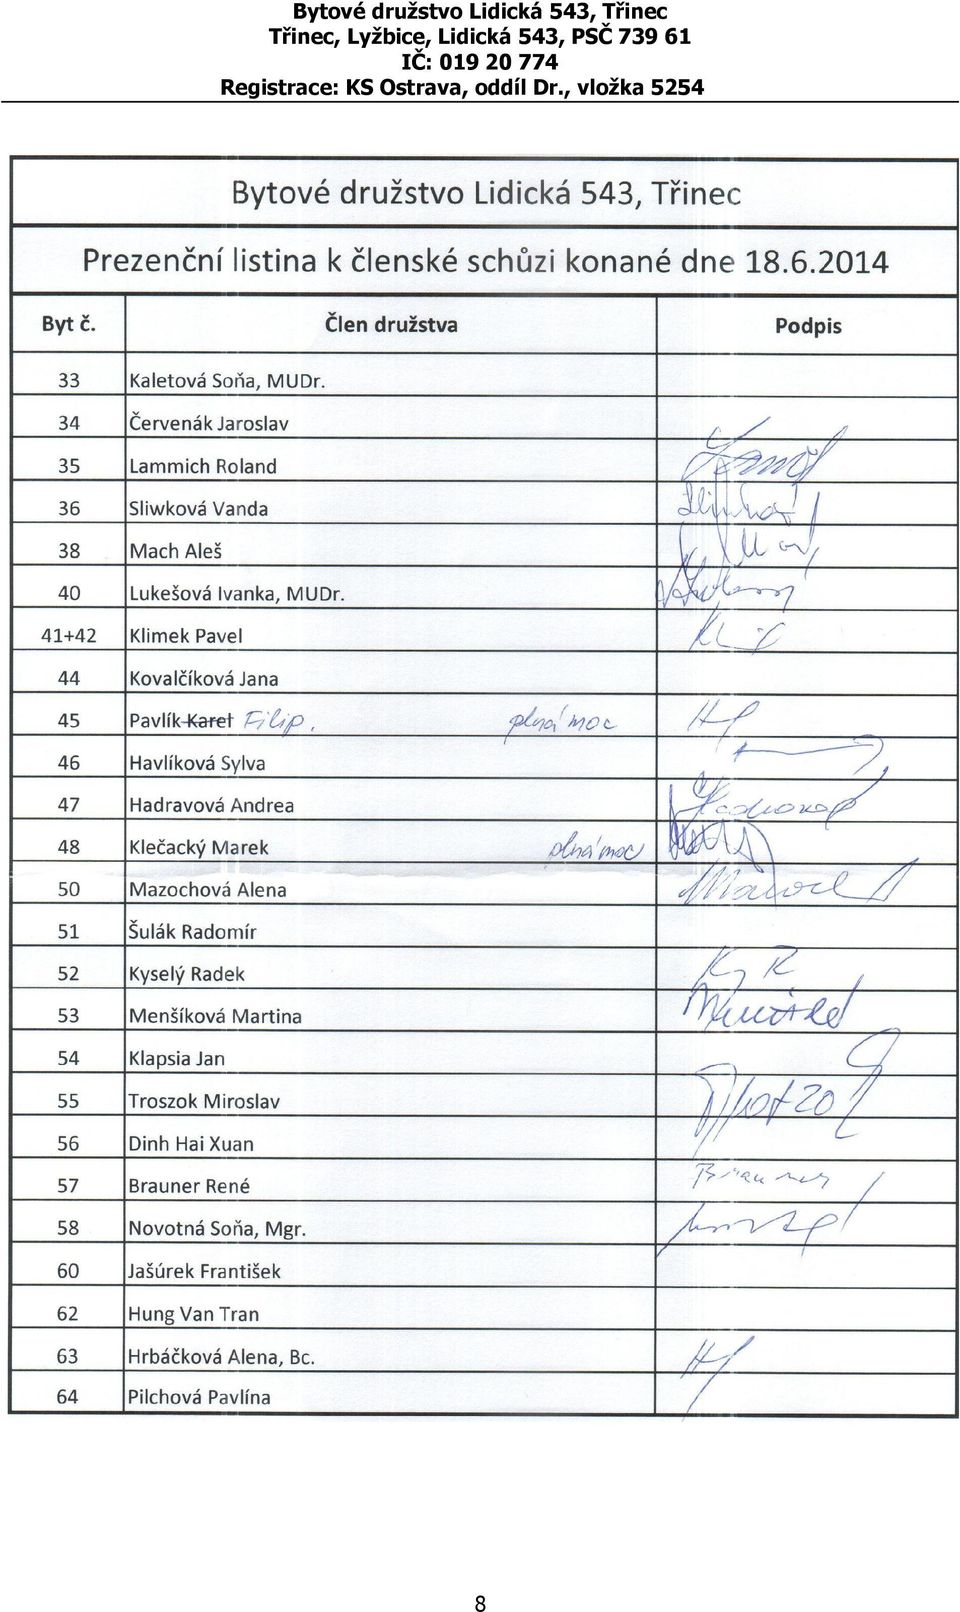 Bytové družstvo Lidická 543, Třinec
Třinec, Lyžbice, Lidická 543, PSČ 739 61
IČ: 019 20 774
Registrace: KS Ostrava, oddíl Dr., vložka 5254
Bytové družstvo Lidická 543, Třinec
Prezenční listina k členské schůzi konané dne 18.6.2014
Byt č. Člen družstva Podpis
33 Kaletová Soňa, MUDr.
34 Červenák Jaroslav
35 Lammich Roland
36 Sliwková Vanda
38 Mach Aleš
40 Lukešová Ivanka, MUDr.
41+42 Klimek Pavel
44 Kovalčíková Jana
45 Pavlík Karel Filip. plná moc
46 Havlíková Sylva
47 Hadravová Andrea
48 Klečacký Marek plná moc
50 Mazochová Alena
51 Šulák Radomír
52 Kyselý Radek Ky R
53 Menšíková Martina
54 Klapsia Jan
55 Troszok Miroslav
56 Dinh Hai Xuan
57 Brauner René
58 Novotná Soňa, Mgr.
60 Jašúrek František
62 Hung Van Tran
63 Hrbáčková Alena, Bc.
64 Pilchová Pavlína
8